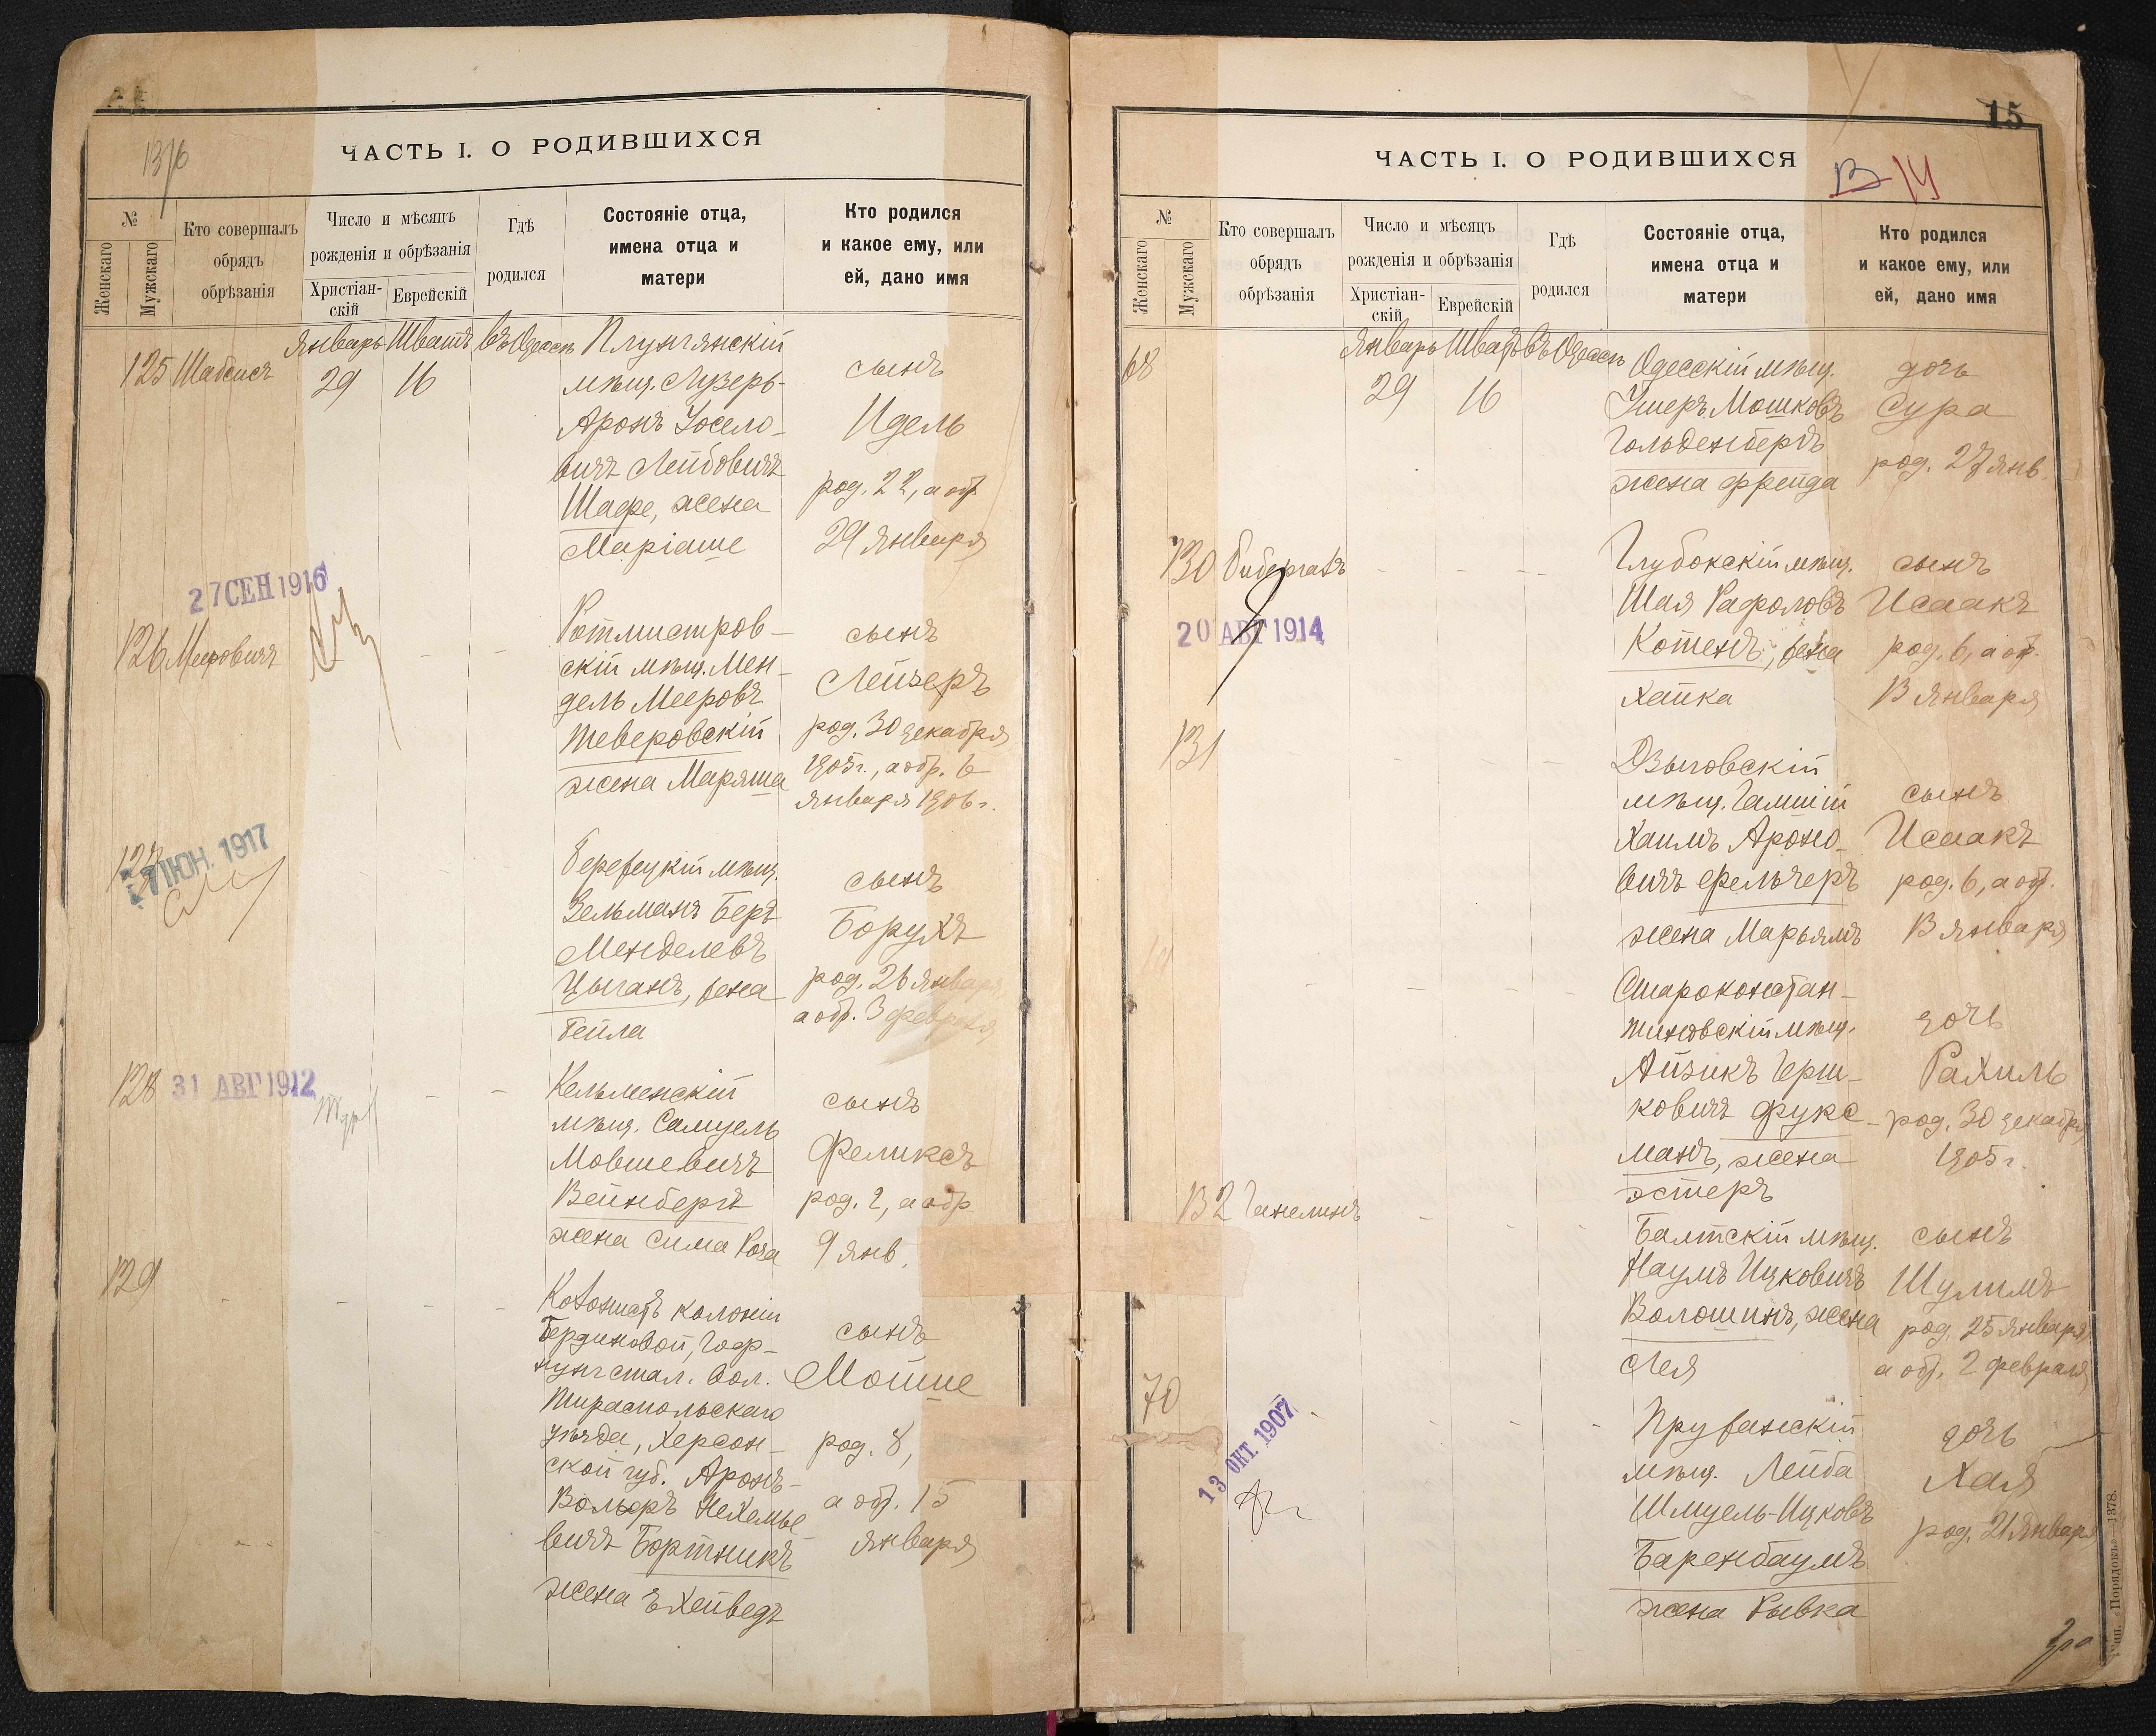 13/6
ЧАСТЬ I. О РОДИВШИХСЯ
№
Женскаго
Мужскаго
Кто совершалъ
обрядъ
обрѣзанія
Число и мѣсяцъ
рожденія и обрѣзанія
Христіан-
скій
Еврейскій
Гдѣ
родился
Состояніе отца,
имена отца и
матери
Кто родился
и какое ему, или
ей, дано имя
Январь Шватъ въ Одессѣ
125 Шабсисъ
29 16
Плунгянскій
мѣщ. Лузеръ-
Аронъ Іосело-
вичъ Лейбовичъ
Шафе, жена
Маріаше
сынъ
Идель
род. 22, а обр.
29 Января
27 СЕН 1916
126 Мееровичъ
Ротмистров-
скій мѣщ. Мен-
дель Мееровъ
Тверовскій
жена Маряша
сынъ
Лейзеръ
род. 30 декабря
1905 г., а обр. 6
января 1906 г.
127
ІЮН. 1917
мѣщ.
Зельманъ Беръ
Менделевъ
Цыганъ, жена
Бейла
сынъ
Борухъ
род. 26 января
а обр. 3 февраля
128
31 АВГ 1912
Кельменскій
мѣщ. Самуель
Мовшевичъ
Вейнбергъ
жена Сима Роза
сынъ
Феликсъ
род. 2, а обр.
9 янв.
129
колоніи
вол.
Тираспольскаго
уѣзда, Херсон-
ской губ. Аронъ-
Вольфъ Нехемье-
вичъ Бортникъ
жена
сынъ
Мойше
род. 8,
а обр. 15
января
15
ЧАСТЬ I. О РОДИВШИХСЯ
13 14
№
Женскаго
Мужскаго
Кто совершалъ
обрядъ
обрѣзанія
Число и мѣсяцъ
рожденія и обрѣзанія
Христіан-
скій
Еврейскій
Гдѣ
родился
Состояніе отца,
имена отца и
матери
Кто родился
и какое ему, или
ей, дано имя
Январь Шватъ въ Одессѣ
68
29 16
Одесскій мѣщ.
Ушеръ Мошковъ
Гольденбергъ
жена Фрейда
дочь
Сура
род. 27 янв.
130 Бибергалъ
20 АВГ 1914
Глубокскій мѣщ.
Шая Рафоловъ
Котенъ, жена
Хайка
сынъ
Исаакъ
род. 6, а обр.
13 Января
131
Дзыговскій
мѣщ.
Хаимъ Ароно-
вичъ Фельчеръ
жена Марьямъ
сынъ
Исаакъ
род. 6, а обр.
13 января
Староконстан-
тиновскій мѣщ.
Айзикъ Герш-
ковичъ Фукс-
манъ, жена
Эстеръ
дочь
Рахиль
род. 30 декабря
1905 г.
132 Ганелинъ
Балтскій мѣщ.
Наумъ Ицковичъ
Волошинъ, жена
Лея
сынъ
Шулимъ
род. 25 января
а обр. 2 февраля
70
13 ОКТ. 1907
Пружанскій
мѣщ. Лейба
Шмуель-Ицковъ
Баренбаумъ
жена Рывка
дочь
Хая
род. 21 января
Тип. „Порядокъ“—1378.